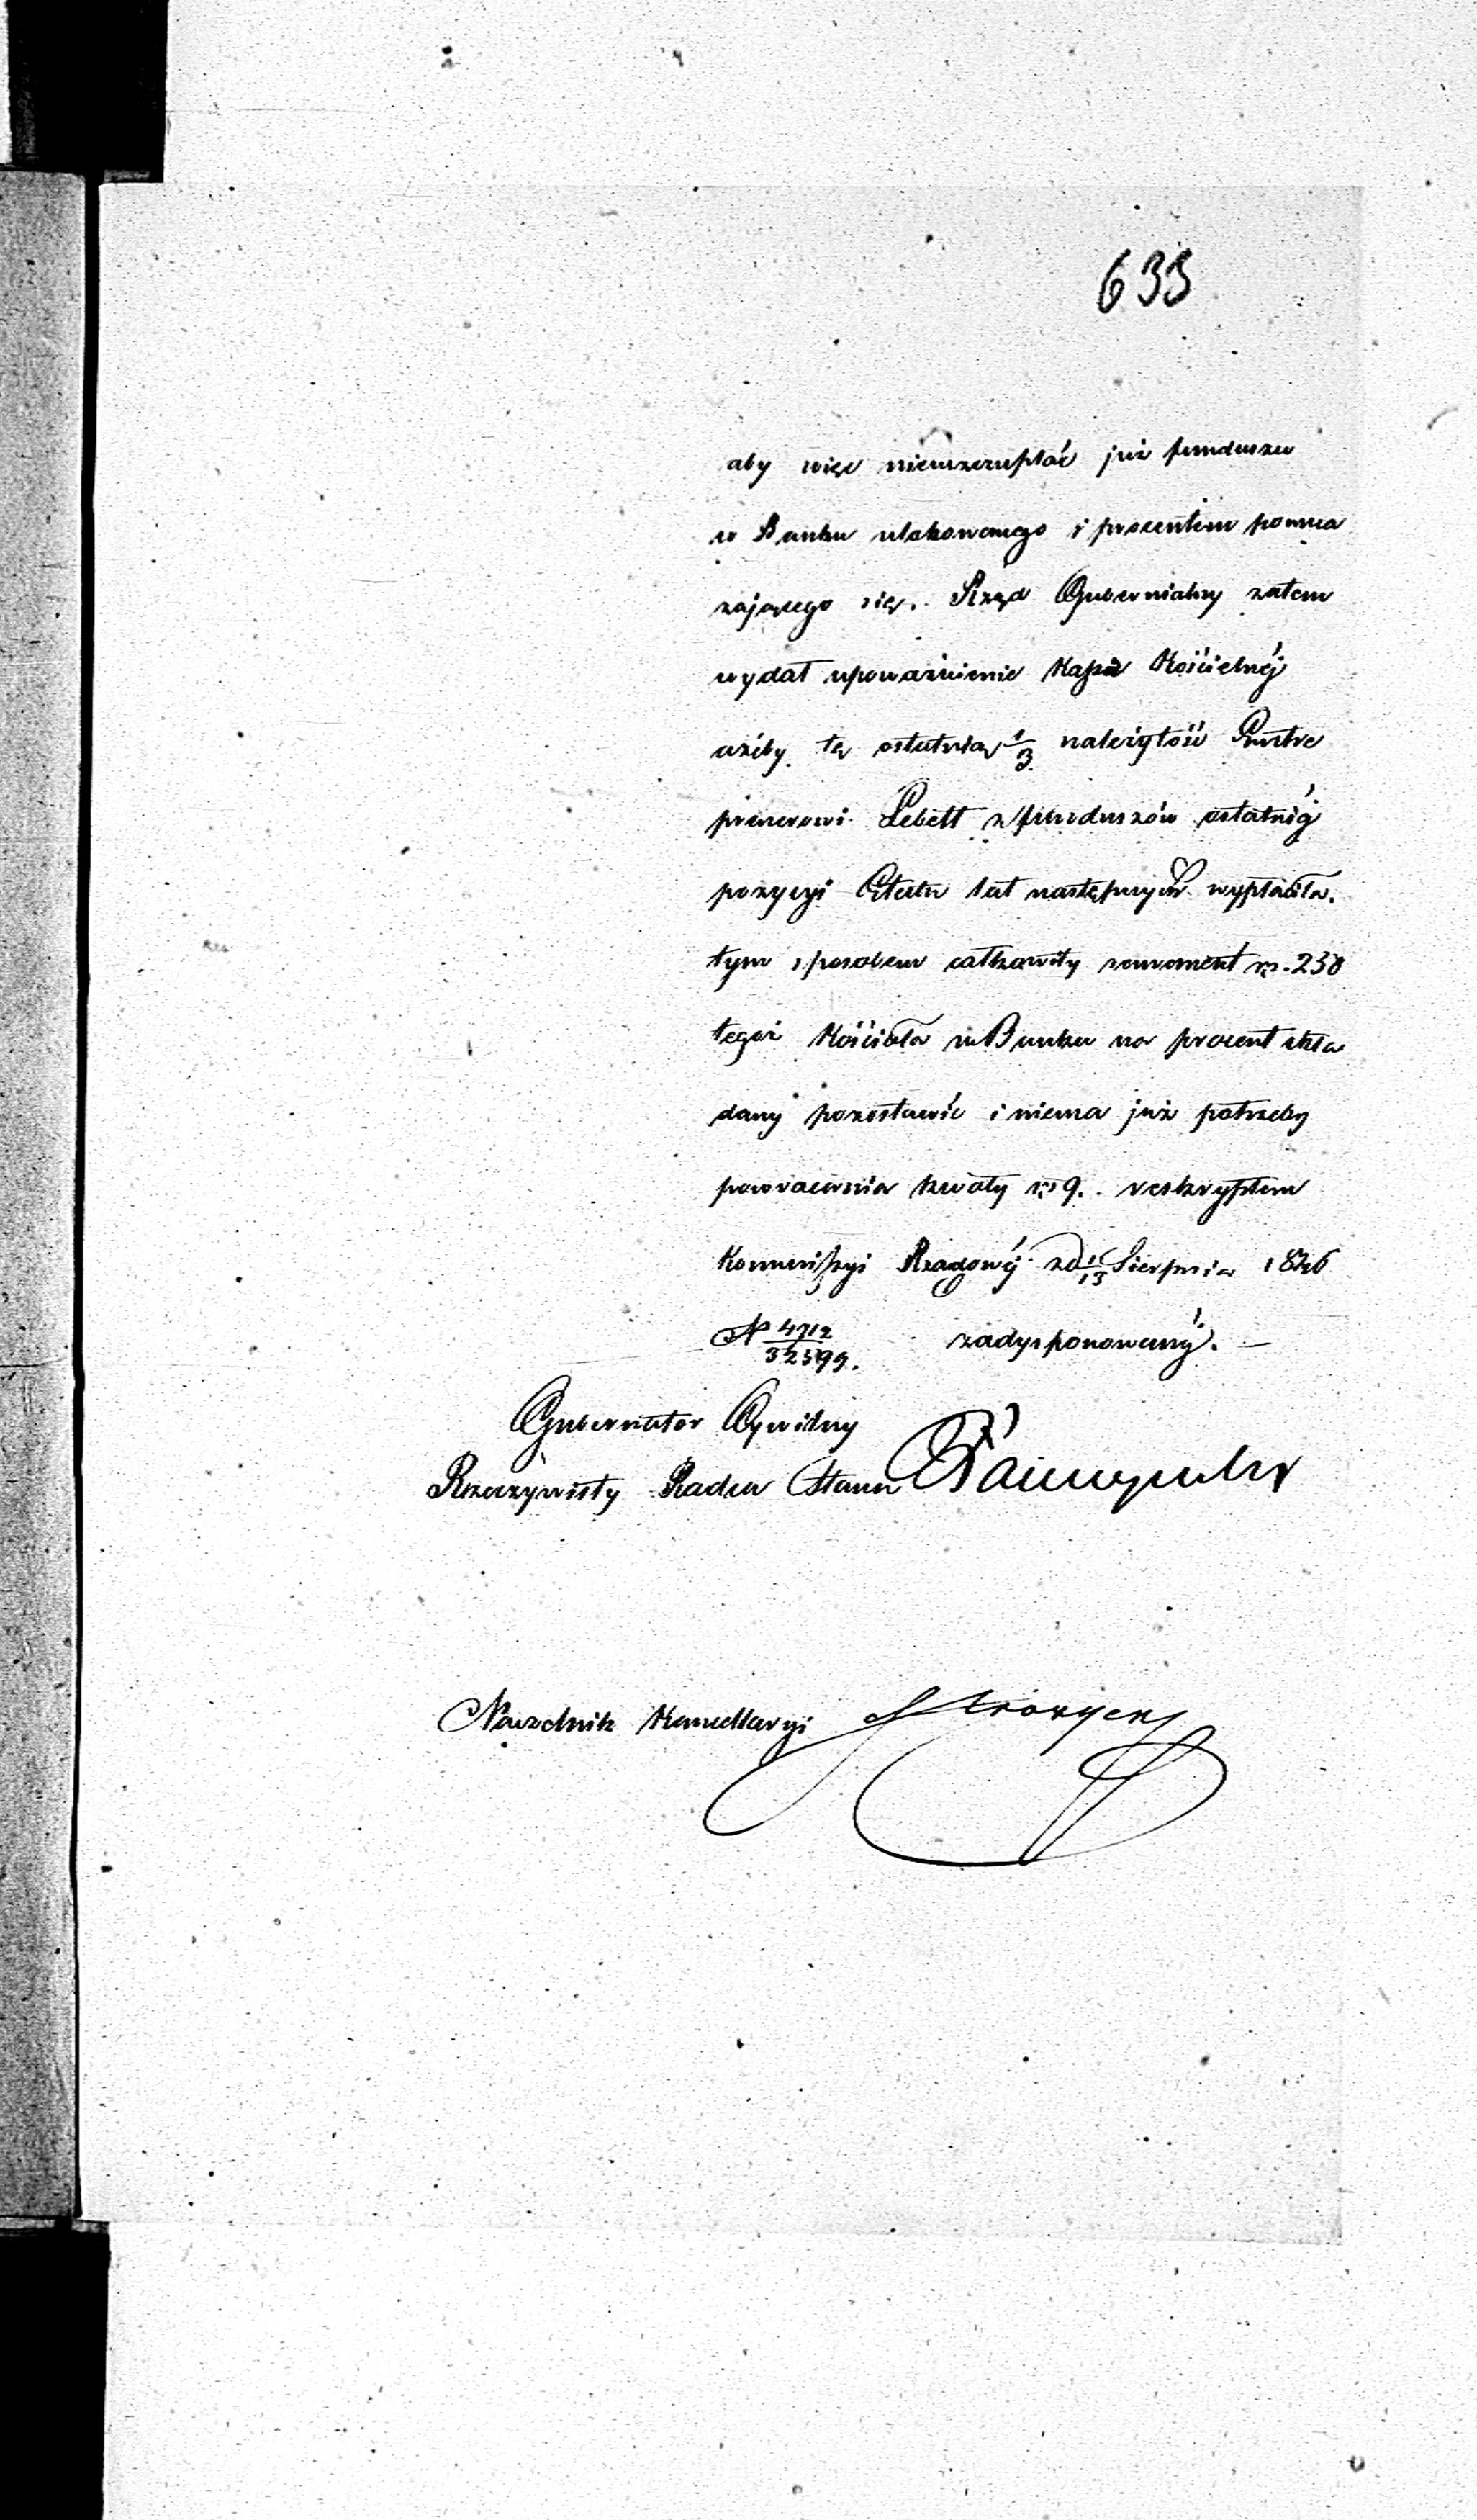 633
aby więc nieuszczuplać już funduszu
w Banku ulokowanego i procentem pomna
zającego się. Rząd Gubernialny zatem
wydał upoważnienie Kassie Kościelnéj
ażeby tę ostatnią 1/3 należytość Entre
prenerowi Lebelt z funduszów ostatniéj
pozycyi Etatu lat następnych wypłaciła.
tym sposobem całkowity remanent rs. 230
tegoż Kościoła w Banku na procent skła
dany pozostawić i niema już potrzeby
powrócenia kwoty rs 9. reskryptem
Kommissyi Rządowéj z d 1/13 Sierpnia 1846
N 4712/32599. zadysponowanéj. —
Gubernator Cywilny
Rzeczywisty Radca Stanu
Naczelnik Kancellaryi